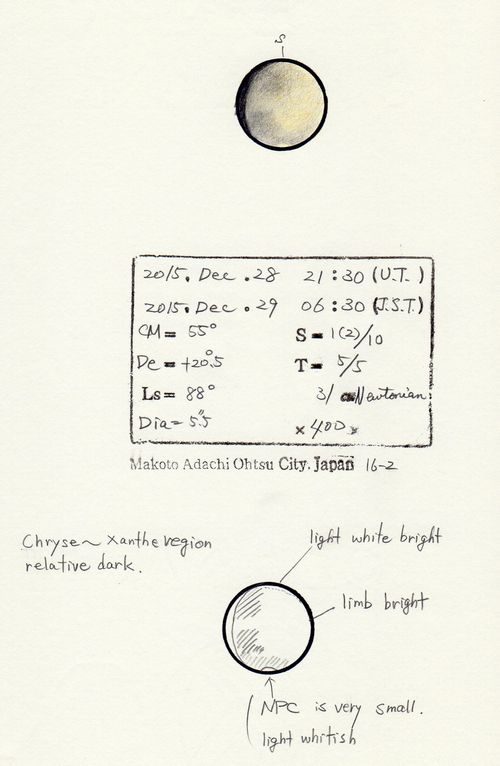 S
2015. Dec. 28 21:30 (U.T.)
2015. Dec. 29 06:30 (J.S.T.)
CM= 55° S= 1(2)/10
De= +20°.5 T= 5/5
Ls= 88° 31 Newtonian
Dia= 5".5 ×400
Makoto Adachi Ohtsu City. Japan 16-2
Chryse~Xanthe region
relative dark.
light white bright
limb bright
NPC is very small.
light whitish